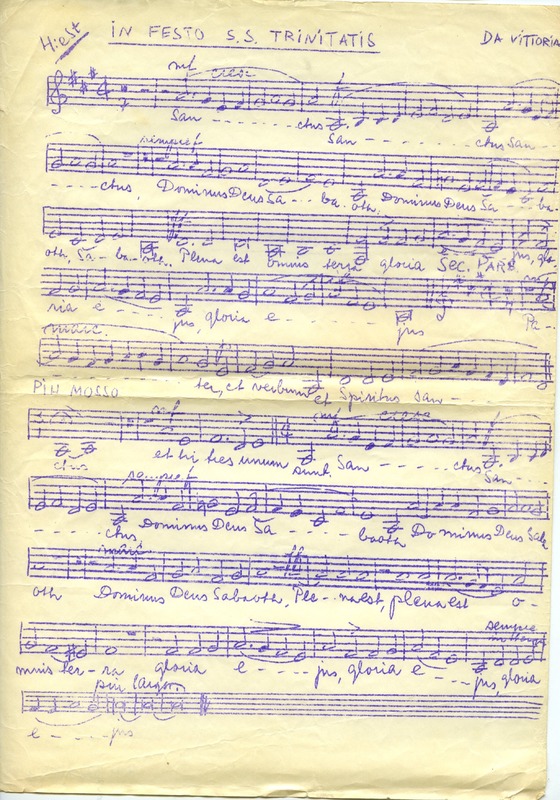 4. est IN FESTO S.S. TRINITATIS DA VITTORIA
mf cresc f
San - - - - ctus San - - - - - - ctus San - -
sempre f
- - - - ctus, Dominus Deus Sa - - - ba - oth, Dominus Deus Sa - - ba -
ff
oth, Sa - ba - oth. Plena est omnis terra gloria SEC. PARS jus, glo
ria e - - - - - jus, gloria e - - - - - - jus Pa -
ter, et verbum et Spiritus San - - -
PIÙ MOSSO
ctus et hi tres unum sunt. San - - - - ctus San - -
mf cresc f
- - - - - ctus Dominus Deus Sa - - - - baoth Dominus Deus Saba
ff
oth Dominus Deus Sabaoth, Ple - - na est, plena est o -
sempre
mnis ter - ra gloria e - - - - jus, gloria e - - - - jus, gloria
più largo
e - - - - jus